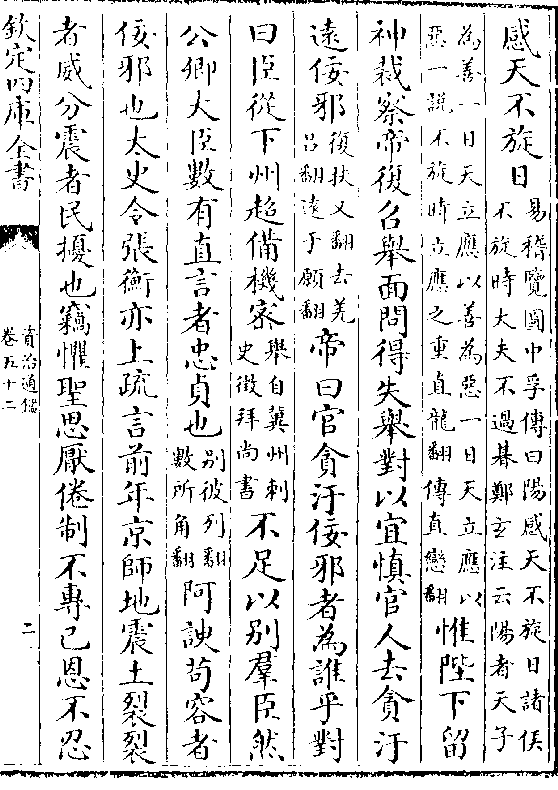 感天不旋日易稽覽圖中孚傳曰陽感天不旋日諸侯不旋時大夫不過朞鄭玄注云陽者天子
為善一日天立應以善為惡一日天立應以惡一說不旋時立應之重直龍翻傳直戀翻惟陛下留
神裁察帝復召舉面問得失舉對以宜慎官人去貪汙
遠佞邪復扶又翻去羌呂翻遠于願翻帝曰官貪汙佞邪者為誰乎對
曰臣從下州超備機密舉自冀州刺史徵拜尚書不足以別羣臣然
公卿大臣數有直言者忠貞也别彼列翻數所角翻阿諛苟容者
佞邪也太史令張衡亦上疏言前年京師地震土裂裂
者威分震者民擾也竊懼聖思厭倦制不專己恩不忍
欽定四庫全書
資治通鑑
卷五十二
二